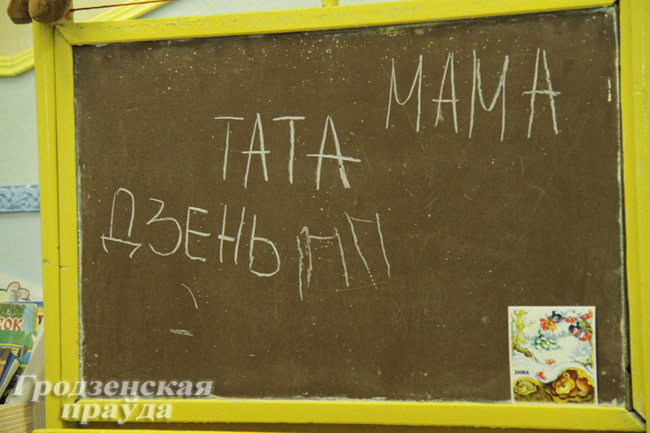 МАМА
ТАТА
ДЗЕНЬ ПП
ЗИМА
ЗОК
Гродзенская
праўда